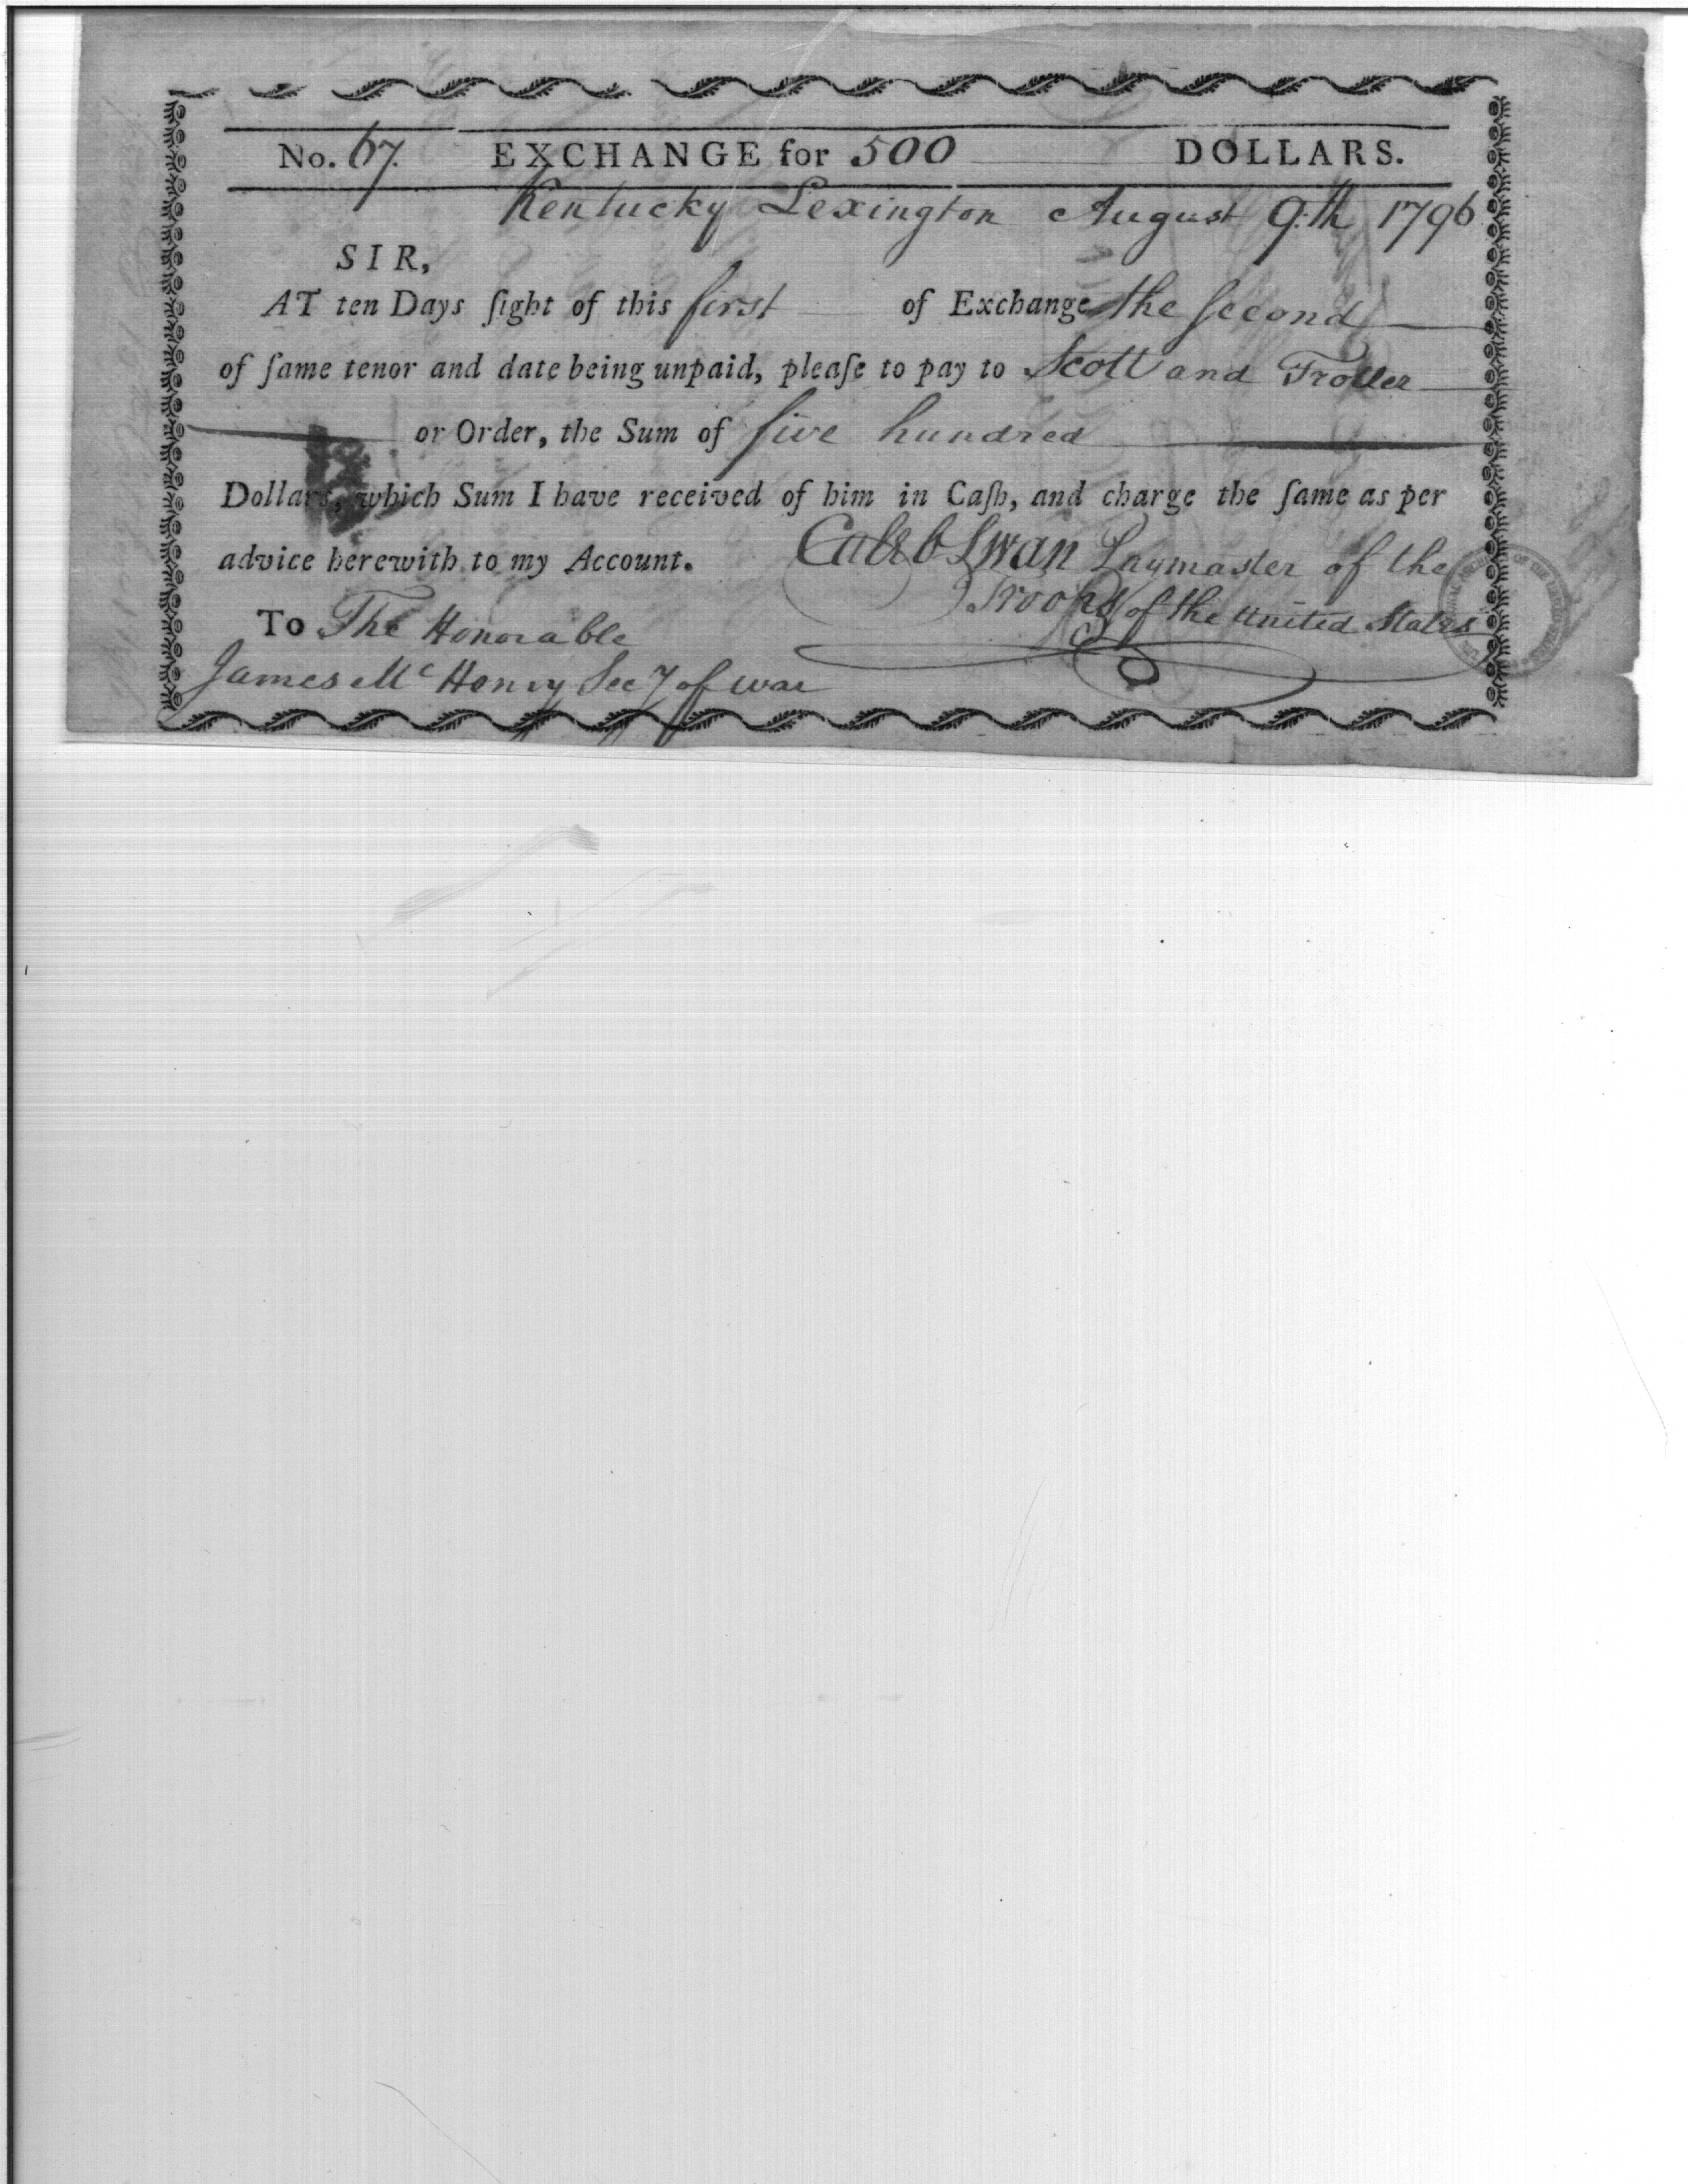 No. 67. EXCHANGE for 500 DOLLARS.
Kentucky Lexington August 9th 1796
SIR,
AT ten Days ſight of this first of Exchange the ſecond
of ſame tenor and date being unpaid, pleaſe to pay to Scott and Trotter
or Order, the Sum of five hundred
Dollars, which Sum I have received of him in Caſh, and charge the ſame as per
advice herewith to my Account. Caleb Swan Paymaster of the
Troops of the United States
To The Honorable
James McHenry Secy of war